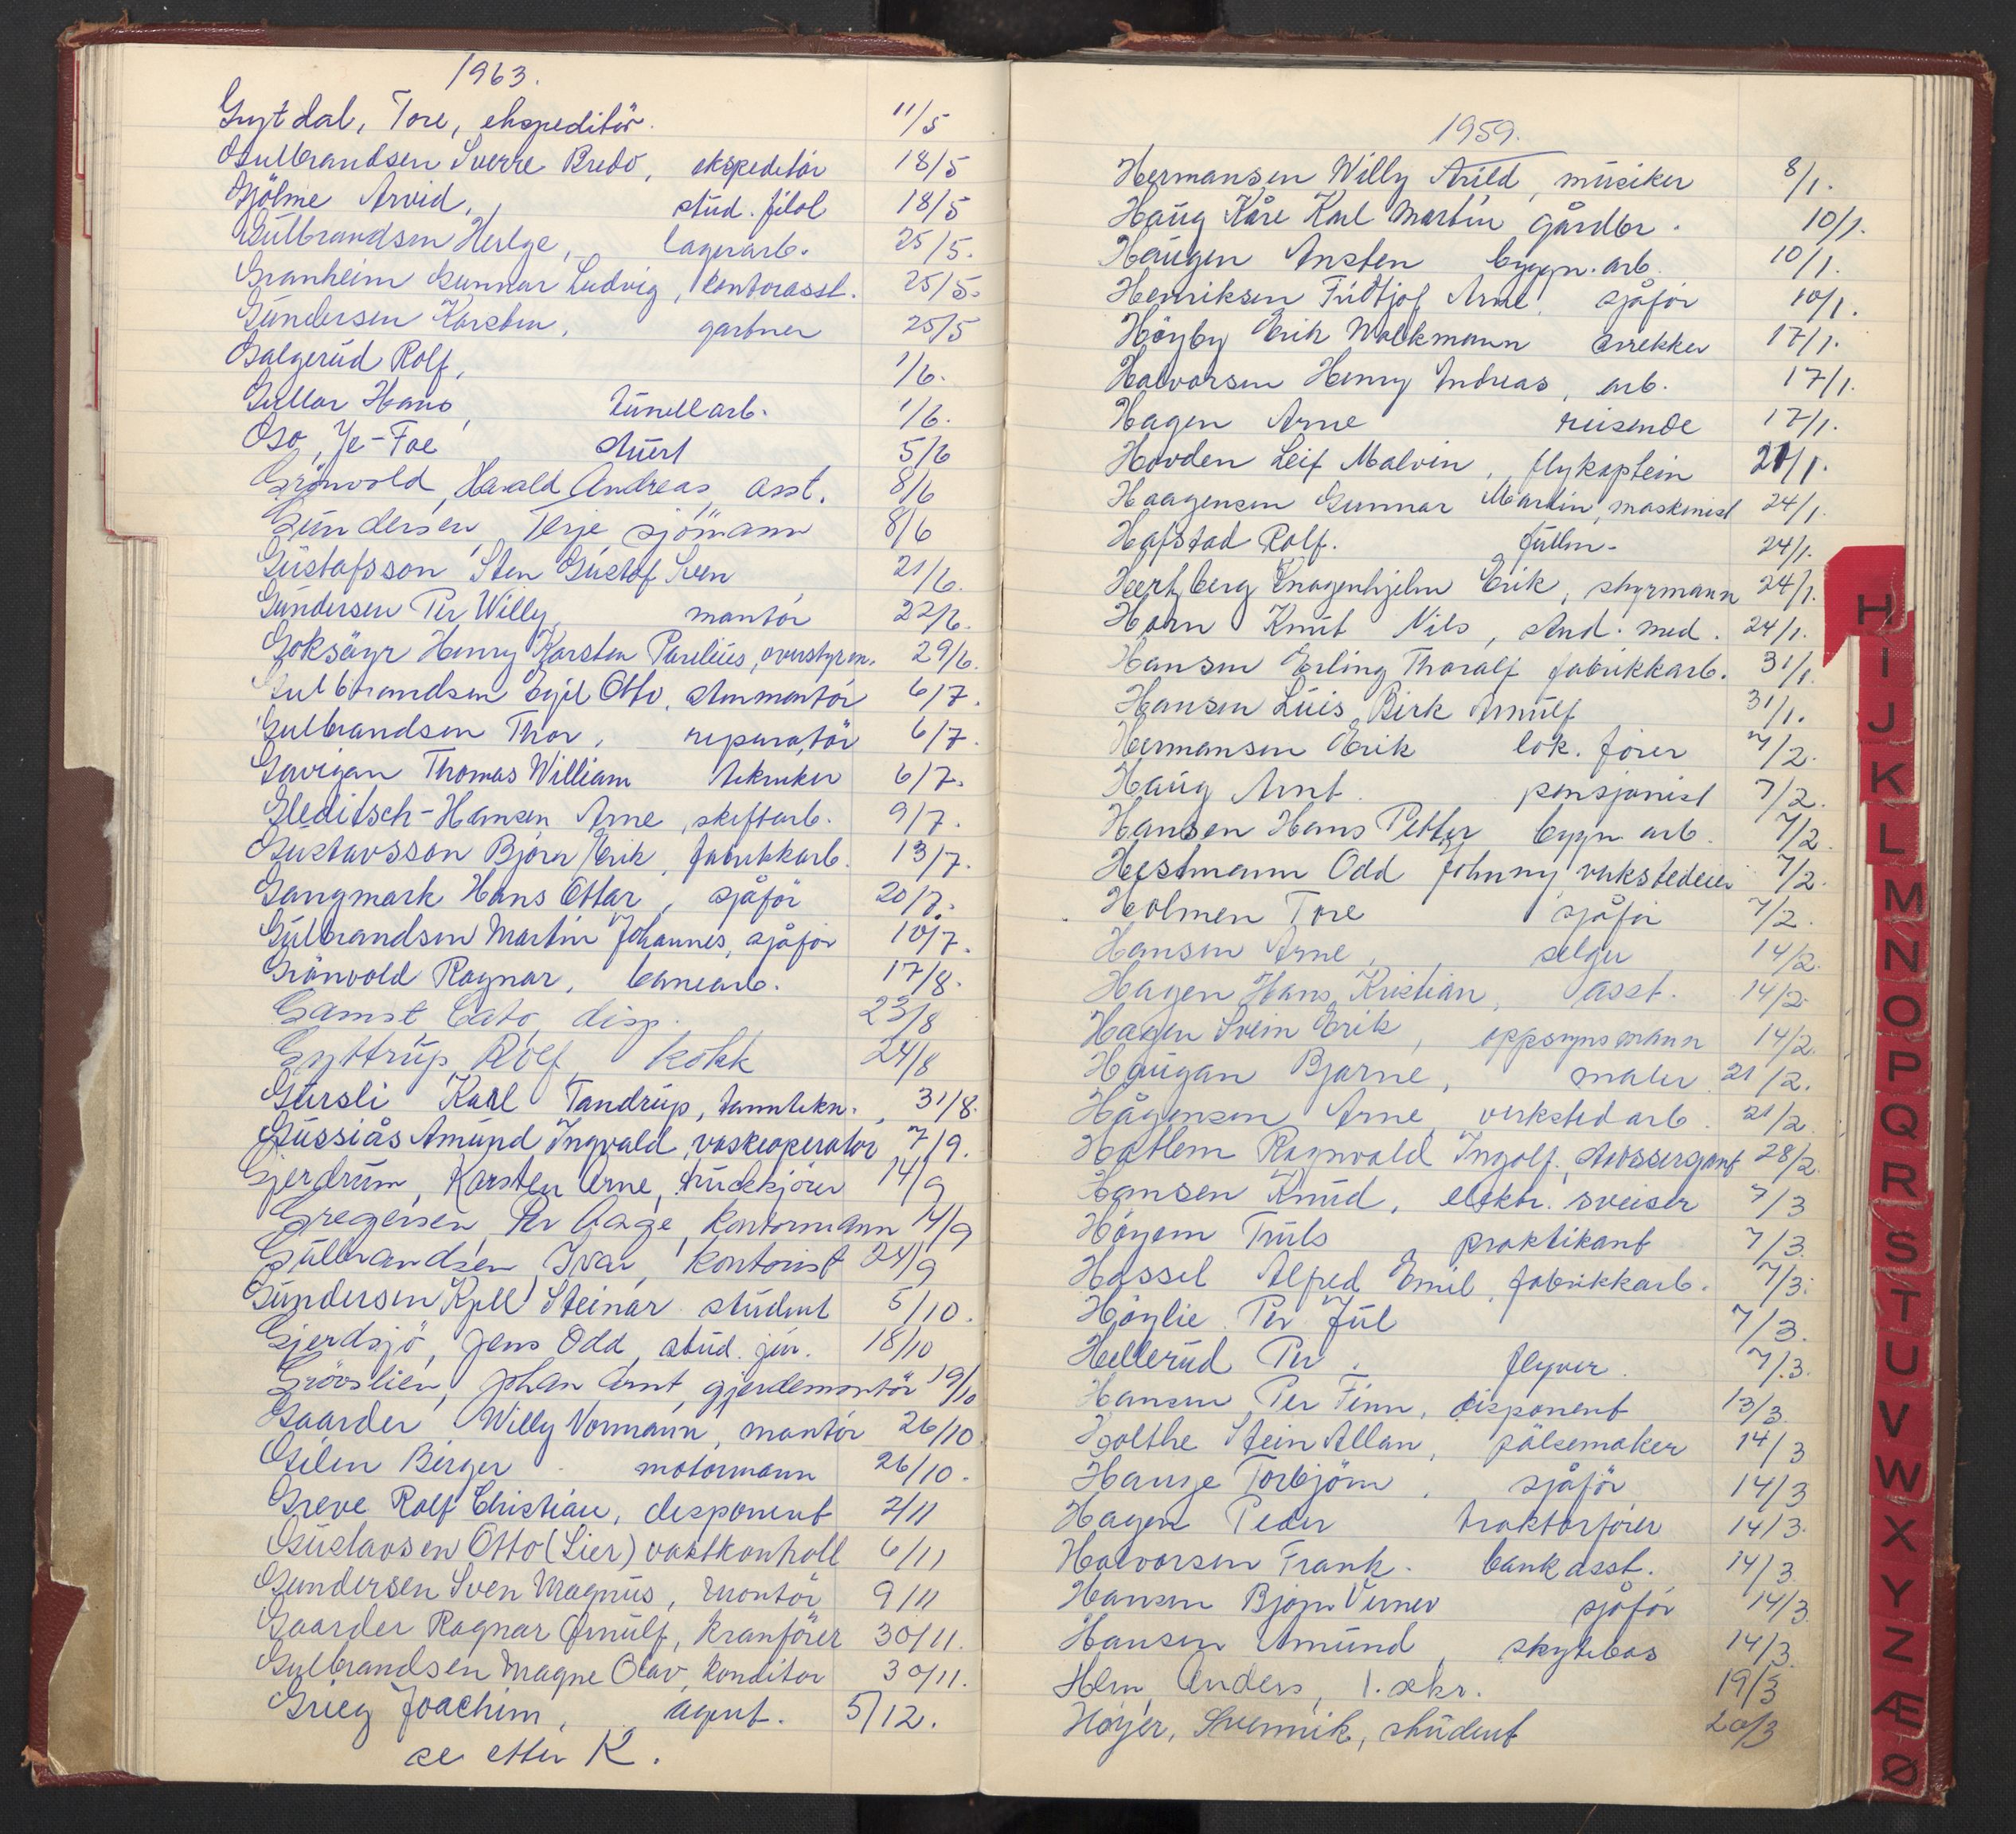 1963.
Gujtdal, Tore, ekspeditör. 11/5
Gulbrandsen Sverre Bredo, ekspeditör 18/5
Gjölme Arvid, stud. filol 18/5
Gulbrandsen Helge, lagerarb. 25/5.
Granheim Gunnar Ludvig, kontorasst. 25/5.
Gundersen Karsten, gartner 25/5
Galgerud Rolf, 1/6.
Gullor Hans, tunellarb. 1/6.
Gso, Je-Foe stuert 5/6
Grönvold, Harald Andreas, asst. 8/6
Gundersen, Terje, sjömann 8/6
Gustafsson Sten Gustof Sven 21/6.
Gundersen Per Willy, montör 22/6.
Goksöyr Henry Karsten Parelius, overstyrm. 29/6.
Gulbrandsen Egil Otto, stenmontör 6/7.
Gulbrandsen Thor, reparatör 6/7.
Gavigan Thomas William tekniker 6/7.
Gleditsch-Hansen Arne, skiftarb. 9/7.
Gustavsson Björn Erik, fabrikkarb. 13/7.
Gangmark Hans Ottar, sjåför 20/7.
Gulbrandsen Martin Johannes, sjåför 10/7.
Grönvold Ragnar, banearb. 17/8.
Gamst, Cato, disp. 23/8
Gyttrup, Rolf, kokk 24/8
Gursli Karl Tandrup, tanntekn. 31/8.
Gussiås Amund Ingvald, vaskeoperatör 7/9.
Gjerdrum, Karsten Arne, truckkjörer 14/9
Gregersen, Per Aage, kontormann 14/9
Gulbrandsen, Ivar, kontorist 24/9
Gundersen Kjell Steinar student 5/10.
Gjerdsjö, Jens Odd, stud. jur. 18/10
Grövslien, Johan Arnt, gjerdemontör 19/10
Gaarder Willy Normann, montör 26/10.
Gilen Birger motormann 26/10.
Greve Rolf Christian, disponent 2/11
Gustavsen Otto (Lier) vaktkontroll 6/11
Gundersen Sven Magnus, montör 9/11
Gaarder Ragnar Arnulf, kranförer 30/11.
Gulbrandsen Magne Olav, konditor 30/11.
Grieg Joachim, agent. 5/12.
se etter K.
1959.
Hermansen Willy Arild, musiker 8/1.
Haug Kåre Karl Martin gårdbr. 10/1.
Haugen Ansten byggn. arb. 10/1.
Henriksen Fridtjof Arne, sjåför 10/1.
Höyby Erik Wolkmann trekker 17/1.
Halvorsen Henry Andreas, arb. 17/1.
Hagen Arne reisende 17/1.
Hovden Leif Malvin, flykaptein 21/1.
Haagensen Gunnar Martin, maskinist 24/1.
Hafstad Rolf. fullm. 24/1.
Hertzberg Knagenhjelm Erik, styrmann 24/1.
Horn Knut Nils, stud. med. 24/1.
Hansen Erling Thoralf fabrikkarb. 31/1.
Hansen Luis Birk Arnulf 31/1.
Hermansen Erik lok. förer 7/2.
Haug Arnt. pensjonist 7/2.
Hansen Hans Petter bygn. arb. 7/2.
Hestmann Odd Johnny verkstedeier 7/2.
Holmen Tore sjåför 7/2.
Hansen Arne, selger 14/2.
Hagen Hans Kristian, asst. 14/2.
Hagen Svein Erik, oppsynsmann 14/2.
Haugan Bjarne, maler 21/2.
Hågensen Arne, verkstedarb. 21/2.
Hatlem Ragnvald Ingolf, stabssersjant 28/2.
Hansen Knud, elektr. sveiser 7/3
Höyem Truls praktikant 7/3.
Hassel Alfred Emil, fabrikkarb. 7/3.
Höylie Per Jul 7/3.
Hellerud Per, flyver. 7/3.
Hansen Per Finn, disponent 13/3.
Holthe Stein Allan, pölsemaker 14/3
Hauge Torbjörn, sjåför 14/3
Hagen Peder traktorförer 14/3.
Halvorsen Frank. bankasst. 14/3.
Hansen Björn Verner sjåför 14/3.
Hansen Amund, skytebas 14/3.
Hem, Anders, 1. sekr. 19/3
Höyer, Svennik, student 20/3
H
I
J
K
L
M
N
O
P
Q
R
S
T
U
V
W
X
Y
Z
Æ
Ø